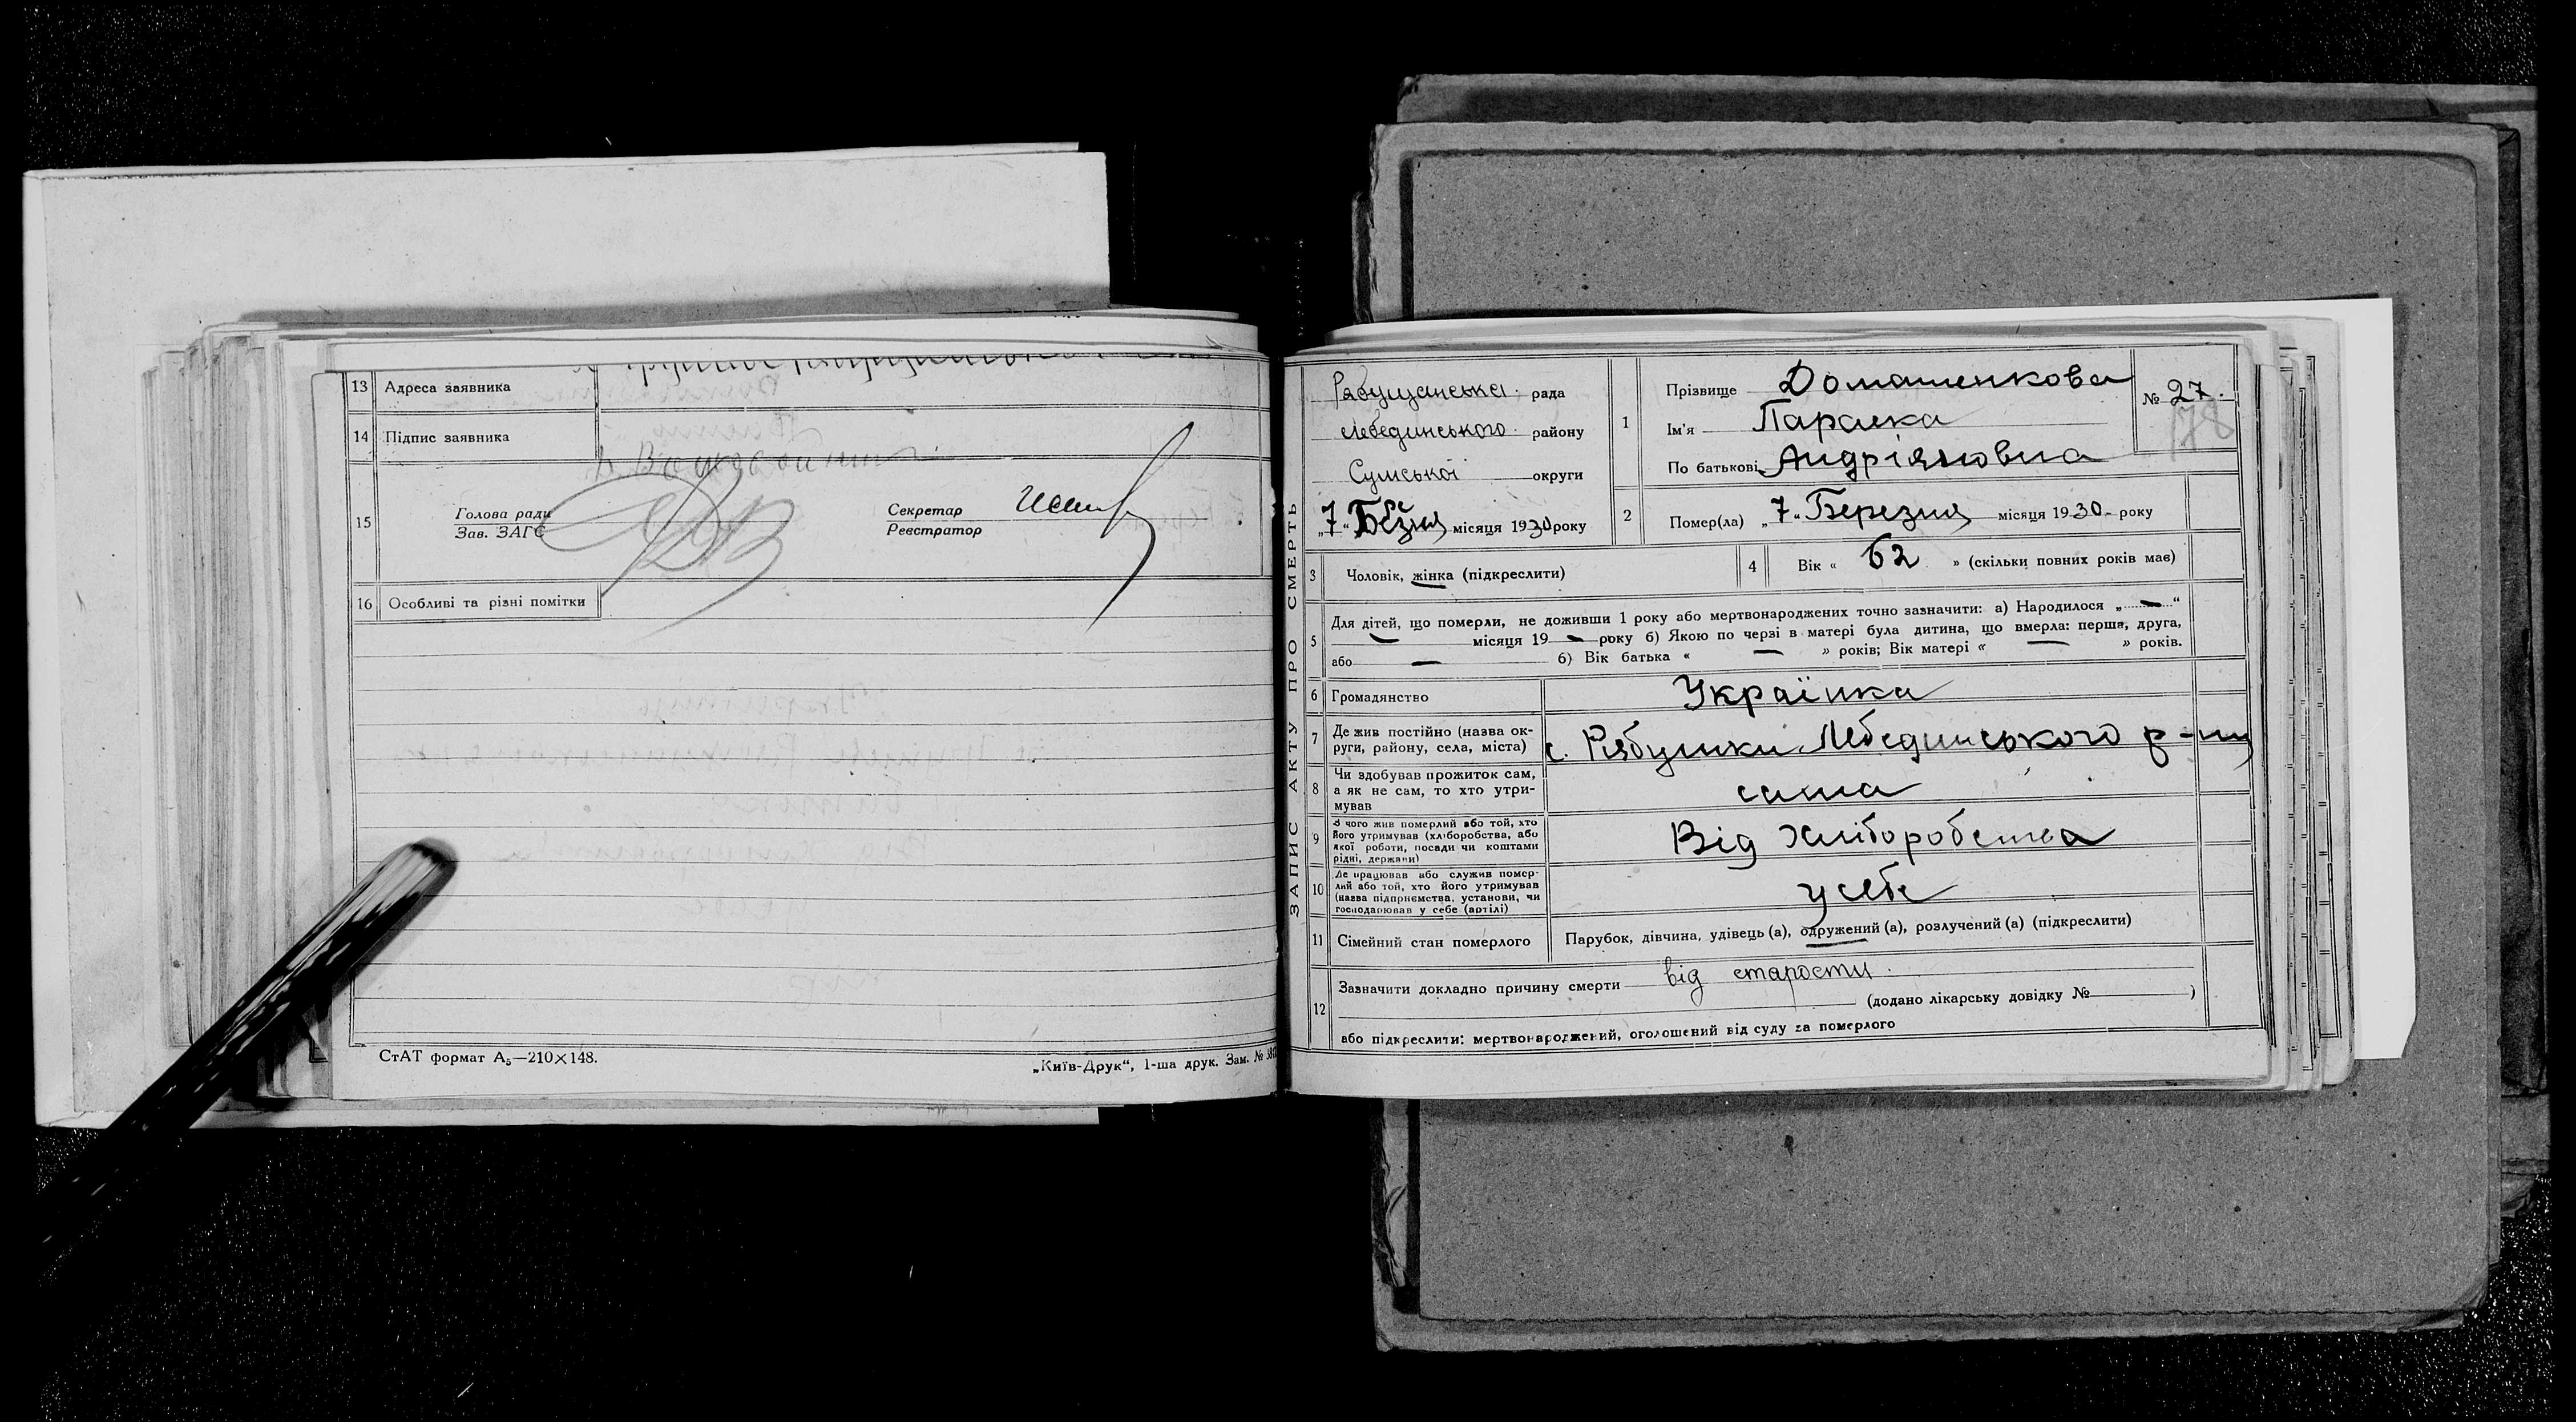 13 Адреса заявника
14 Підпис заявника
15 Голова ради
Зав. ЗАГС
Секретар
Реєстратор
16 Особливі та різні помітки
СтАТ формат А₅—210×148.
„Київ-Друк“, 1-ша друк. Зам. №
ЗАПИС АКТУ ПРО СМЕРТЬ
Рябушанська рада
Лебединського району
Сумської округи
„7“ Березня місяця 1930 року
1 Прізвище Домашенкова
Ім'я Параска
По батькові Андріяновна
№ 27.
178
2 Помер(ла) „7“ Березня місяця 1930 року
3 Чоловік, жінка (підкреслити)
4 Вік « 62 » (скільки повних років має)
5 Для дітей, що померли, не доживши 1 року або мертвонароджених точно зазначити: а) Народилося „ — “
— місяця 19 — року б) Якою по черзі в матері була дитина, що вмерла: перша, друга,
або — б) Вік батька « — » років; Вік матері « — » років.
6 Громадянство Українка
7 Де жив постійно (назва ок-
руги, району, села, міста) с. Рябушки Лебединського р-ну
8 Чи здобував прожиток сам,
а як не сам, то хто утри-
мував сама
9 З чого жив померлий або той, хто
його утримував (хліборобства, або
якої роботи, посади чи коштами
рідні, держави) Від Хліборобства
10 Де працював або служив помер-
лий або той, хто його утримував
(назва підприємства, установи, чи
господарював у себе (артілі) у себе
11 Сімейний стан померлого Парубок, дівчина, удівець (а), одружений (а), розлучений (а) (підкреслити)
12 Зазначити докладно причину смерти від старости
(додано лікарську довідку № )
або підкреслити: мертвонароджений, оголошений від суду за померлого